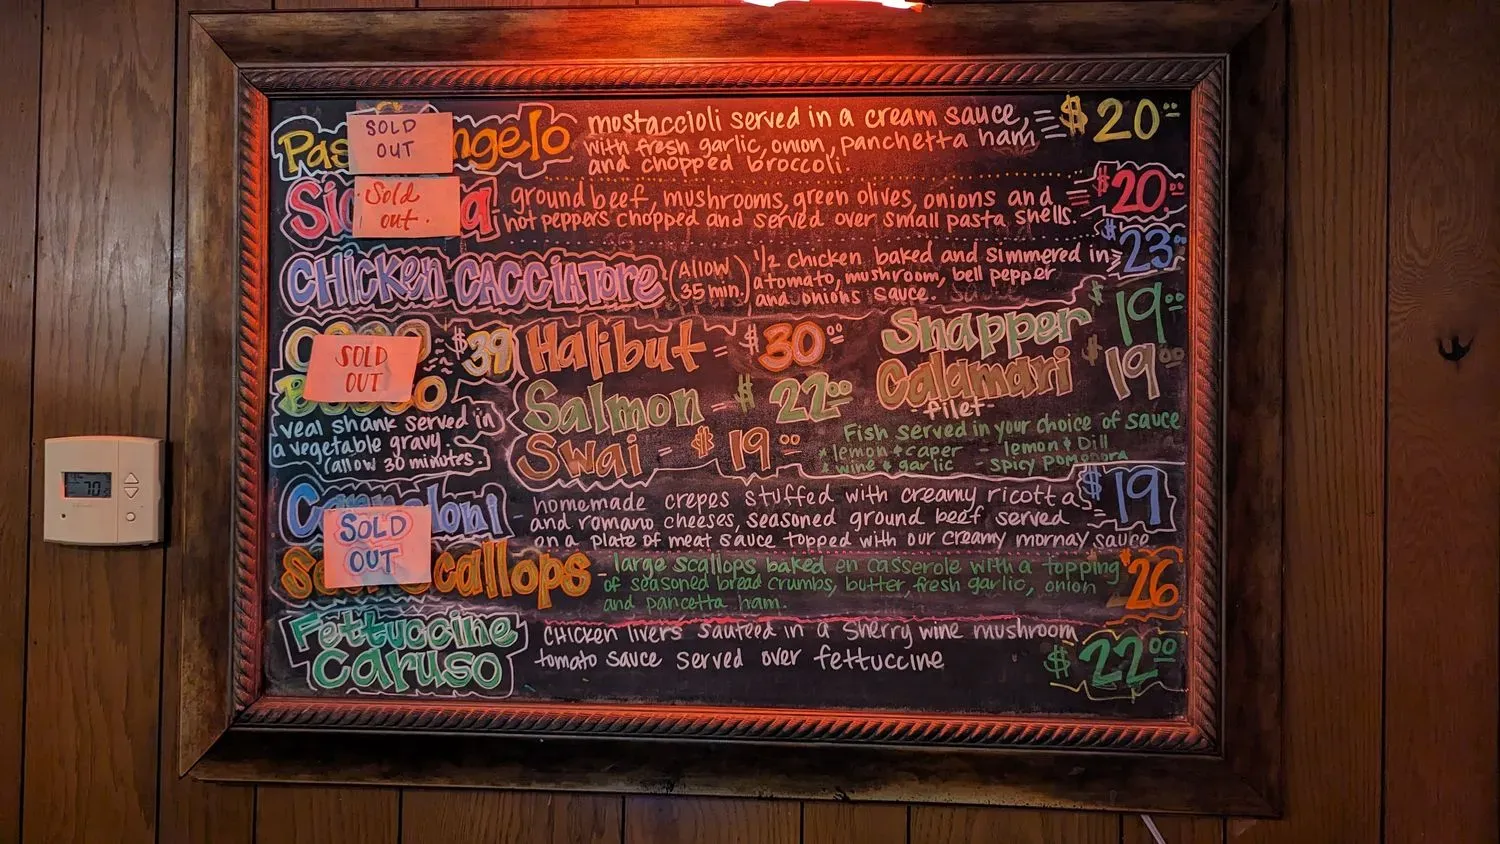 SOLD
OUT
ngelo
mostaccioli served in a cream sauce,
with fresh garlic, onion, panchetta ham
and chopped broccoli.
$20
Sold
out.
ground beef, mushrooms, green olives, onions and
hot peppers chopped and served over small pasta shells.
$20.00
CHICKEN CACCIATORE
(Allow
35 min.)
1/2 chicken baked and simmered in
a tomato, mushroom, bell pepper
and onions sauce.
$23.00
SOLD
OUT
$39
veal shank served in
a vegetable gravy.
(allow 30 minutes.
Halibut - $30.00
Salmon - $22.00
Swai - $19.00
Snapper $19.00
Calamari $19.00
-filet-
Fish served in your choice of sauce
* lemon & caper - lemon & Dill
* wine & garlic - spicy pomodora
SOLD
OUT
loni
- homemade crepes stuffed with creamy ricotta
and romano cheeses, seasoned ground beef served
on a plate of meat sauce topped with our creamy mornay sauce
$19
callops
- large scallops baked en casserole with a topping
of seasoned bread crumbs, butter, fresh garlic, onion
and pancetta ham.
$26
Fettuccine
Caruso
chicken livers sauteed in a sherry wine mushroom
tomato sauce served over fettuccine
$22.00
70